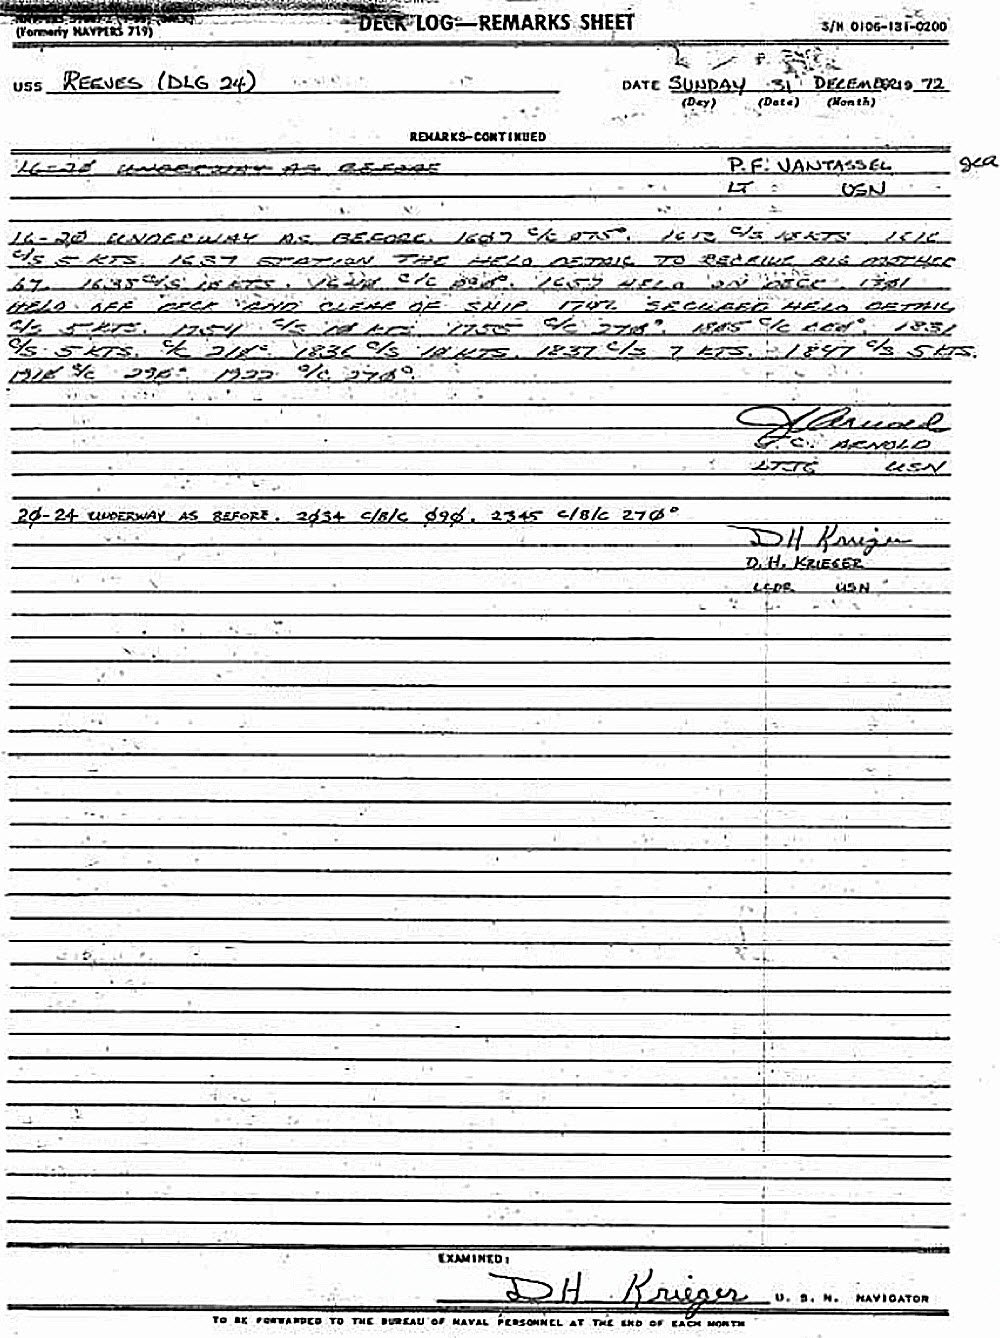 (Formerly NAVPERS 719)
DECK LOG—REMARKS SHEET
S/N 0106-131-0200
USS REEVES (DLG 24)
DATE SUNDAY 31 DECEMBER 19 72
(Day) (Date) (Month)
REMARKS—CONTINUED
16-20 UNDERWAY AS BEFORE
P.F. VANTASSEL
LT USN
16-2Ø UNDERWAY AS BEFORE. 16Ø7 C/C Ø75°. 1612 C/S 18 KTS 1616
C/S 5 KTS. 1637 STATION THE HELO DETAIL TO RECEIVE BIG MOTHER
67. 1635 C/S 1Ø KTS. C/C Ø9Ø°. 1657 HELO ON DECK.
HELO OFF DECK AND CLEAR OF SHIP. 1742 SECURED HELO DETAIL
C/S 5 KTS. 1754 C/S 1Ø KTS 1755 C/C 27Ø°. 18Ø5 C/C 1831
C/S 5 KTS. C/C 21Ø° 1836 C/S 1Ø KTS. 1837 C/S 7 KTS. 1847 C/S 5 KTS.
191Ø C/C 29Ø°. 1922 C/C 27Ø°.
J. C. ARNOLD
LTJG USN
2Ø-24 UNDERWAY AS BEFORE. 2Ø34 C/B/C Ø9Ø. 2345 C/B/C 27Ø°
DH Krieger
D.H. KRIEGER
LCDR USN
EXAMINED:
DH Krieger U. S. N. NAVIGATOR
TO BE FORWARDED TO THE BUREAU OF NAVAL PERSONNEL AT THE END OF EACH MONTH